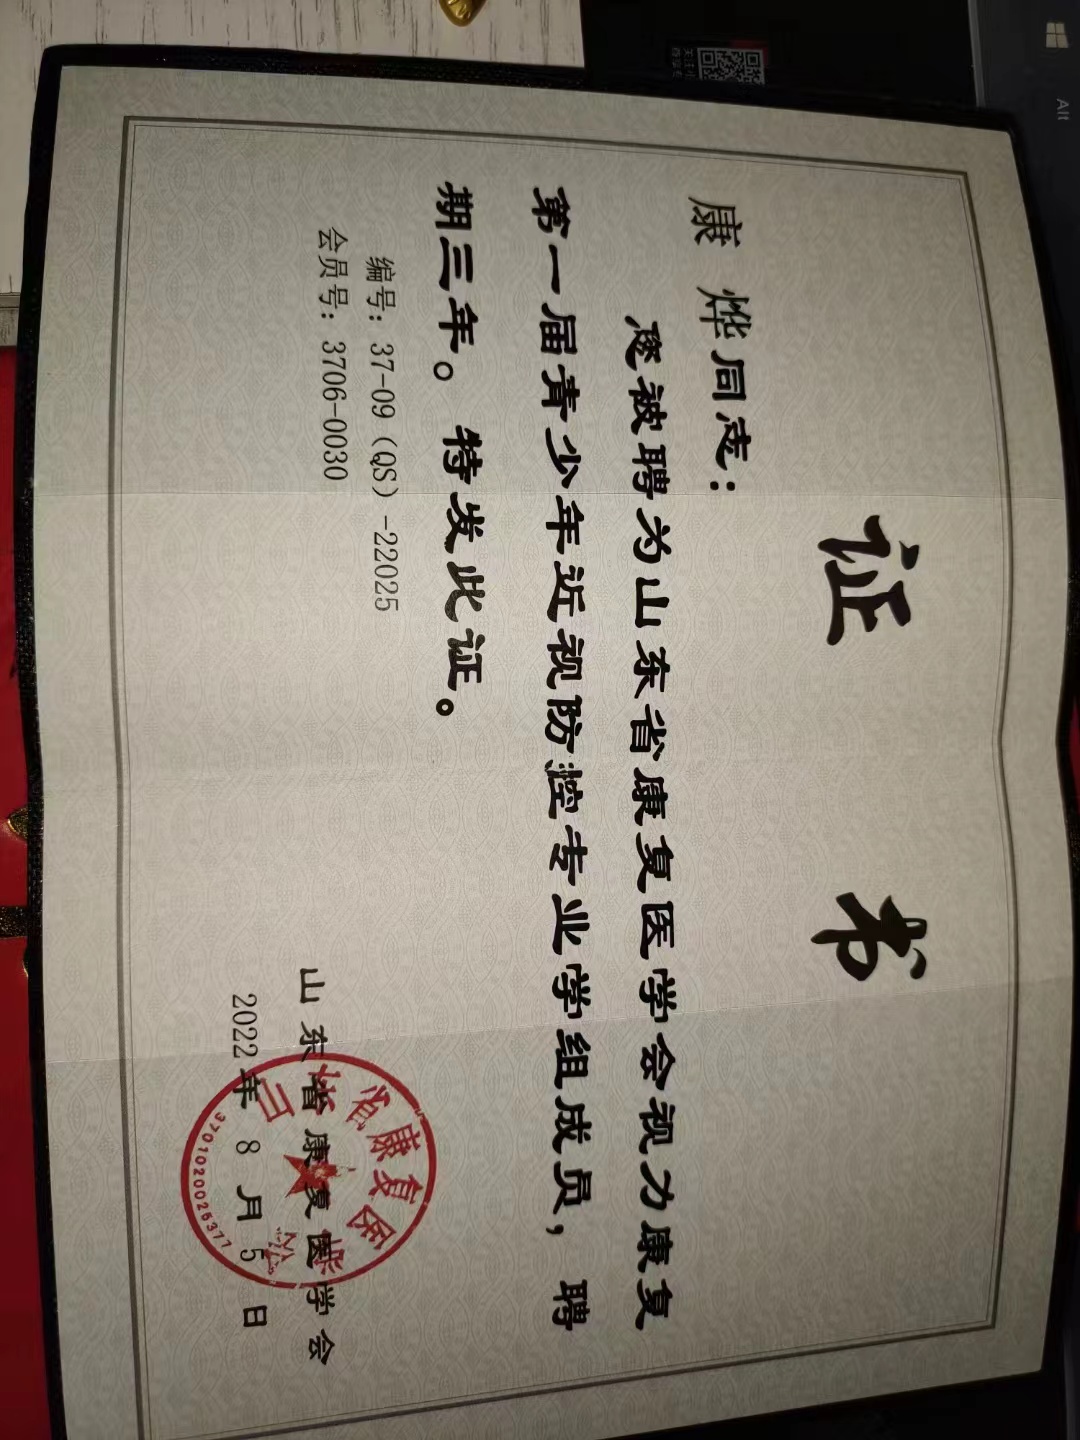 证书
康 烨同志：
您被聘为山东省康复医学会视力康复
第一届青少年近视防控专业学组成员，聘
期三年。特发此证。
编号：37-09（QS）-22025
会员号：3706-0030
山东省康复医学会
2022年 8 月 5 日
3701020025377
Alt